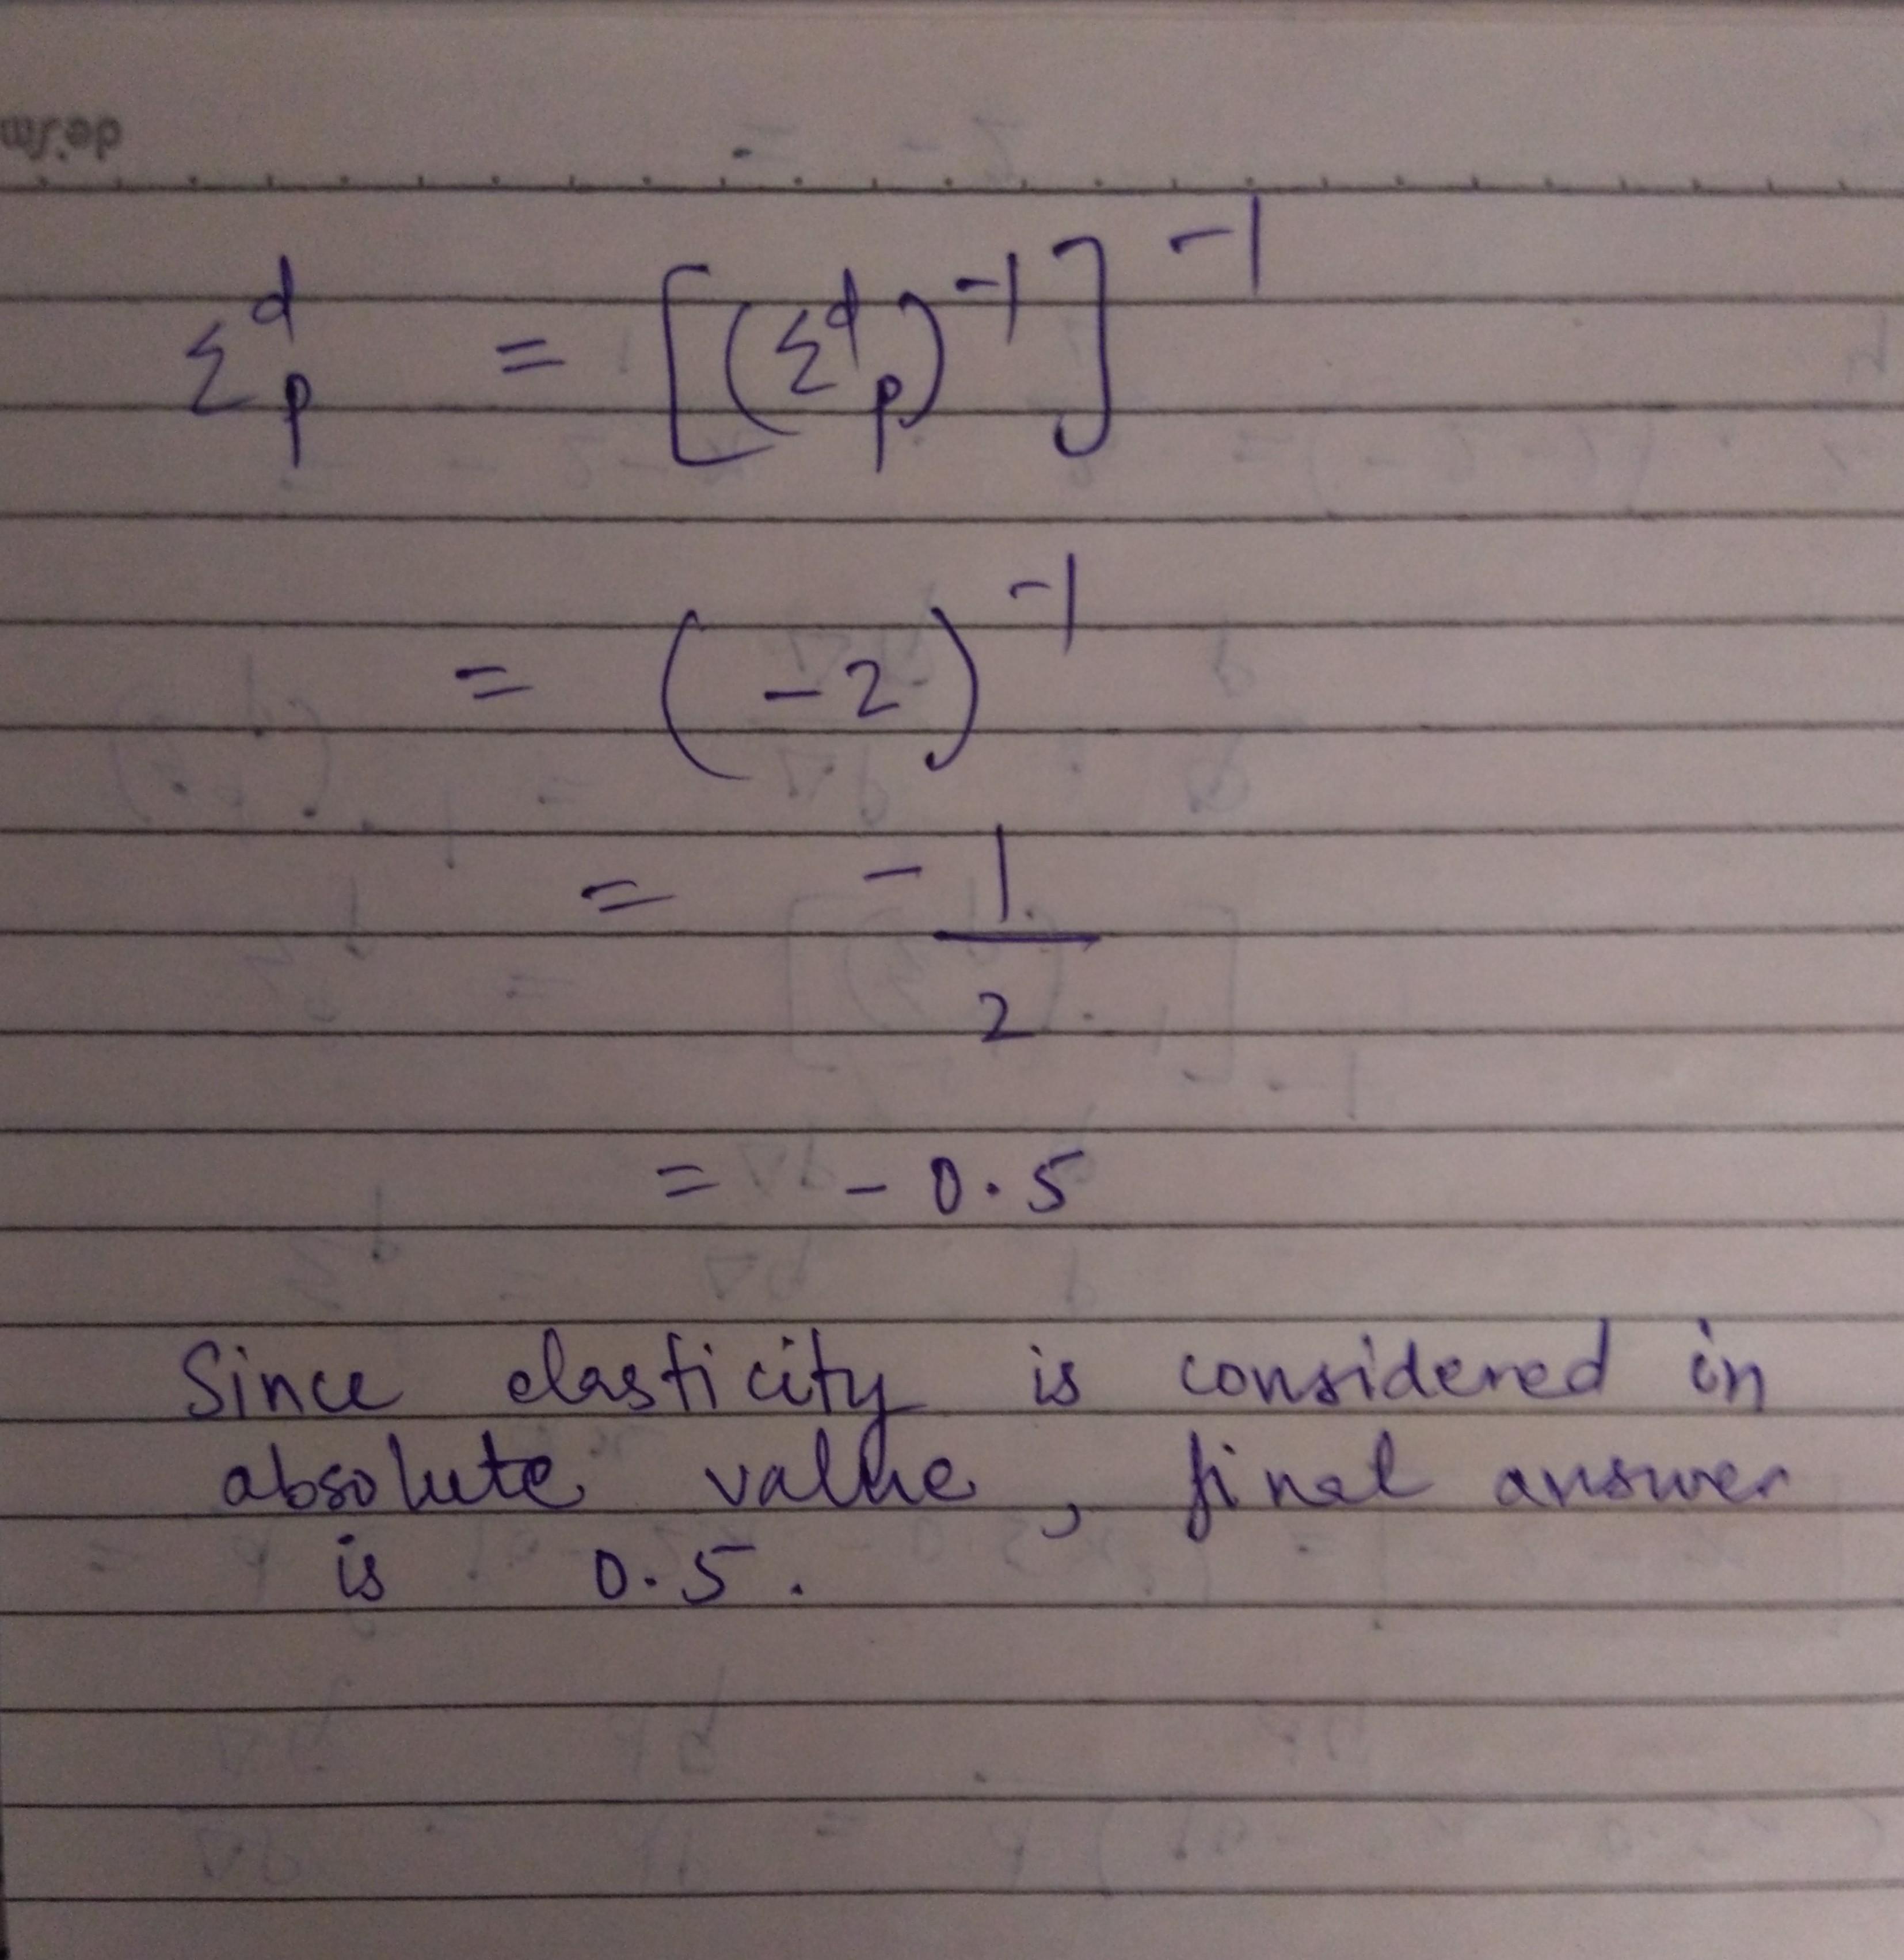 Σ^d_p = [(Σ^d_p)^-1]^-1
= (-2)^-1
= -1/2
= -0.5
Since elasticity is considered in
absolute value, final answer
is 0.5.